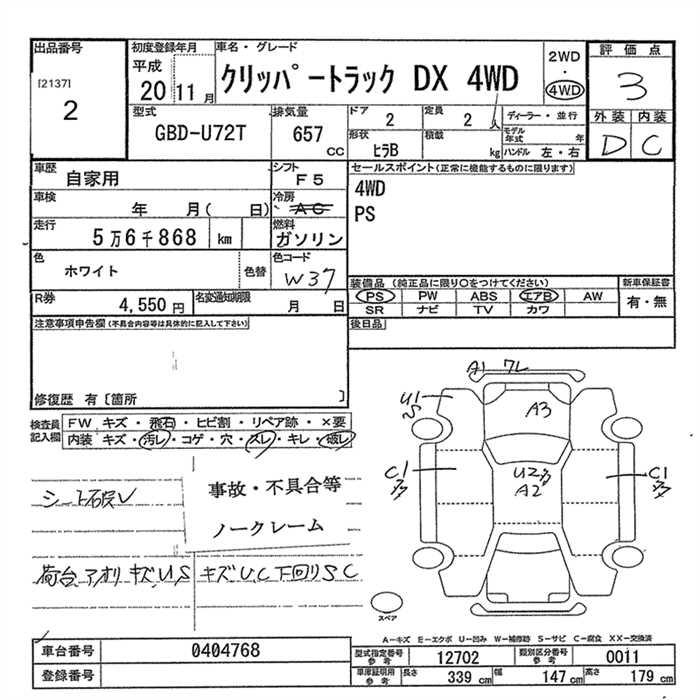 出品番号
[2137]
2
初度登録年月
平成
20 11 月
車名・グレード
クリッパートラック DX 4WD
2WD
・
4WD
評価点
3
外装 内装
D C
型式
GBD-U72T
排気量
657
CC
ドア
2
定員
2
人
形状
ヒラB
積載
kg
ディーラー・並行
モデル年式 年
ハンドル 左・右
車歴
自家用
シフト
F5
セールスポイント(正常に機能するものに限ります)
4WD
PS
車検
年 月( 日)
冷房
AC
走行
5万6千868 km
燃料
ガソリン
色
ホワイト
色替
色コード
W37
R券
4,550 円
名変通知期限
月 日
装備品 (純正品に限り〇をつけてください)
PS PW ABS エアB AW
SR ナビ TV カワ
新車保証書
有・無
後日品
注意事項申告欄(不具合内容等は具体的に記入して下さい)
修復歴 有 [箇所 ]
検査員記入欄
FW キズ・飛石・ヒビ割・リペア跡・×要
内装 キズ・汚レ・コゲ・穴・スレ・キレ・破レ
事故・不具合等
ノークレーム
荷台,アオリ キズ,U,S キズ U,C 下回りS C
A1 ワレ
U1
S
A3
C1
U2
A2
C1
スペア
A－キズ E－エクボ U－凹み W－補修跡 S－サビ C－腐食 XX－交換済
車台番号
0404768
登録番号
型式指定番号 参考
12702
類別区分番号 参考
0011
車庫証明用 参考
長さ 339 cm 幅 147 cm 高さ 179 cm